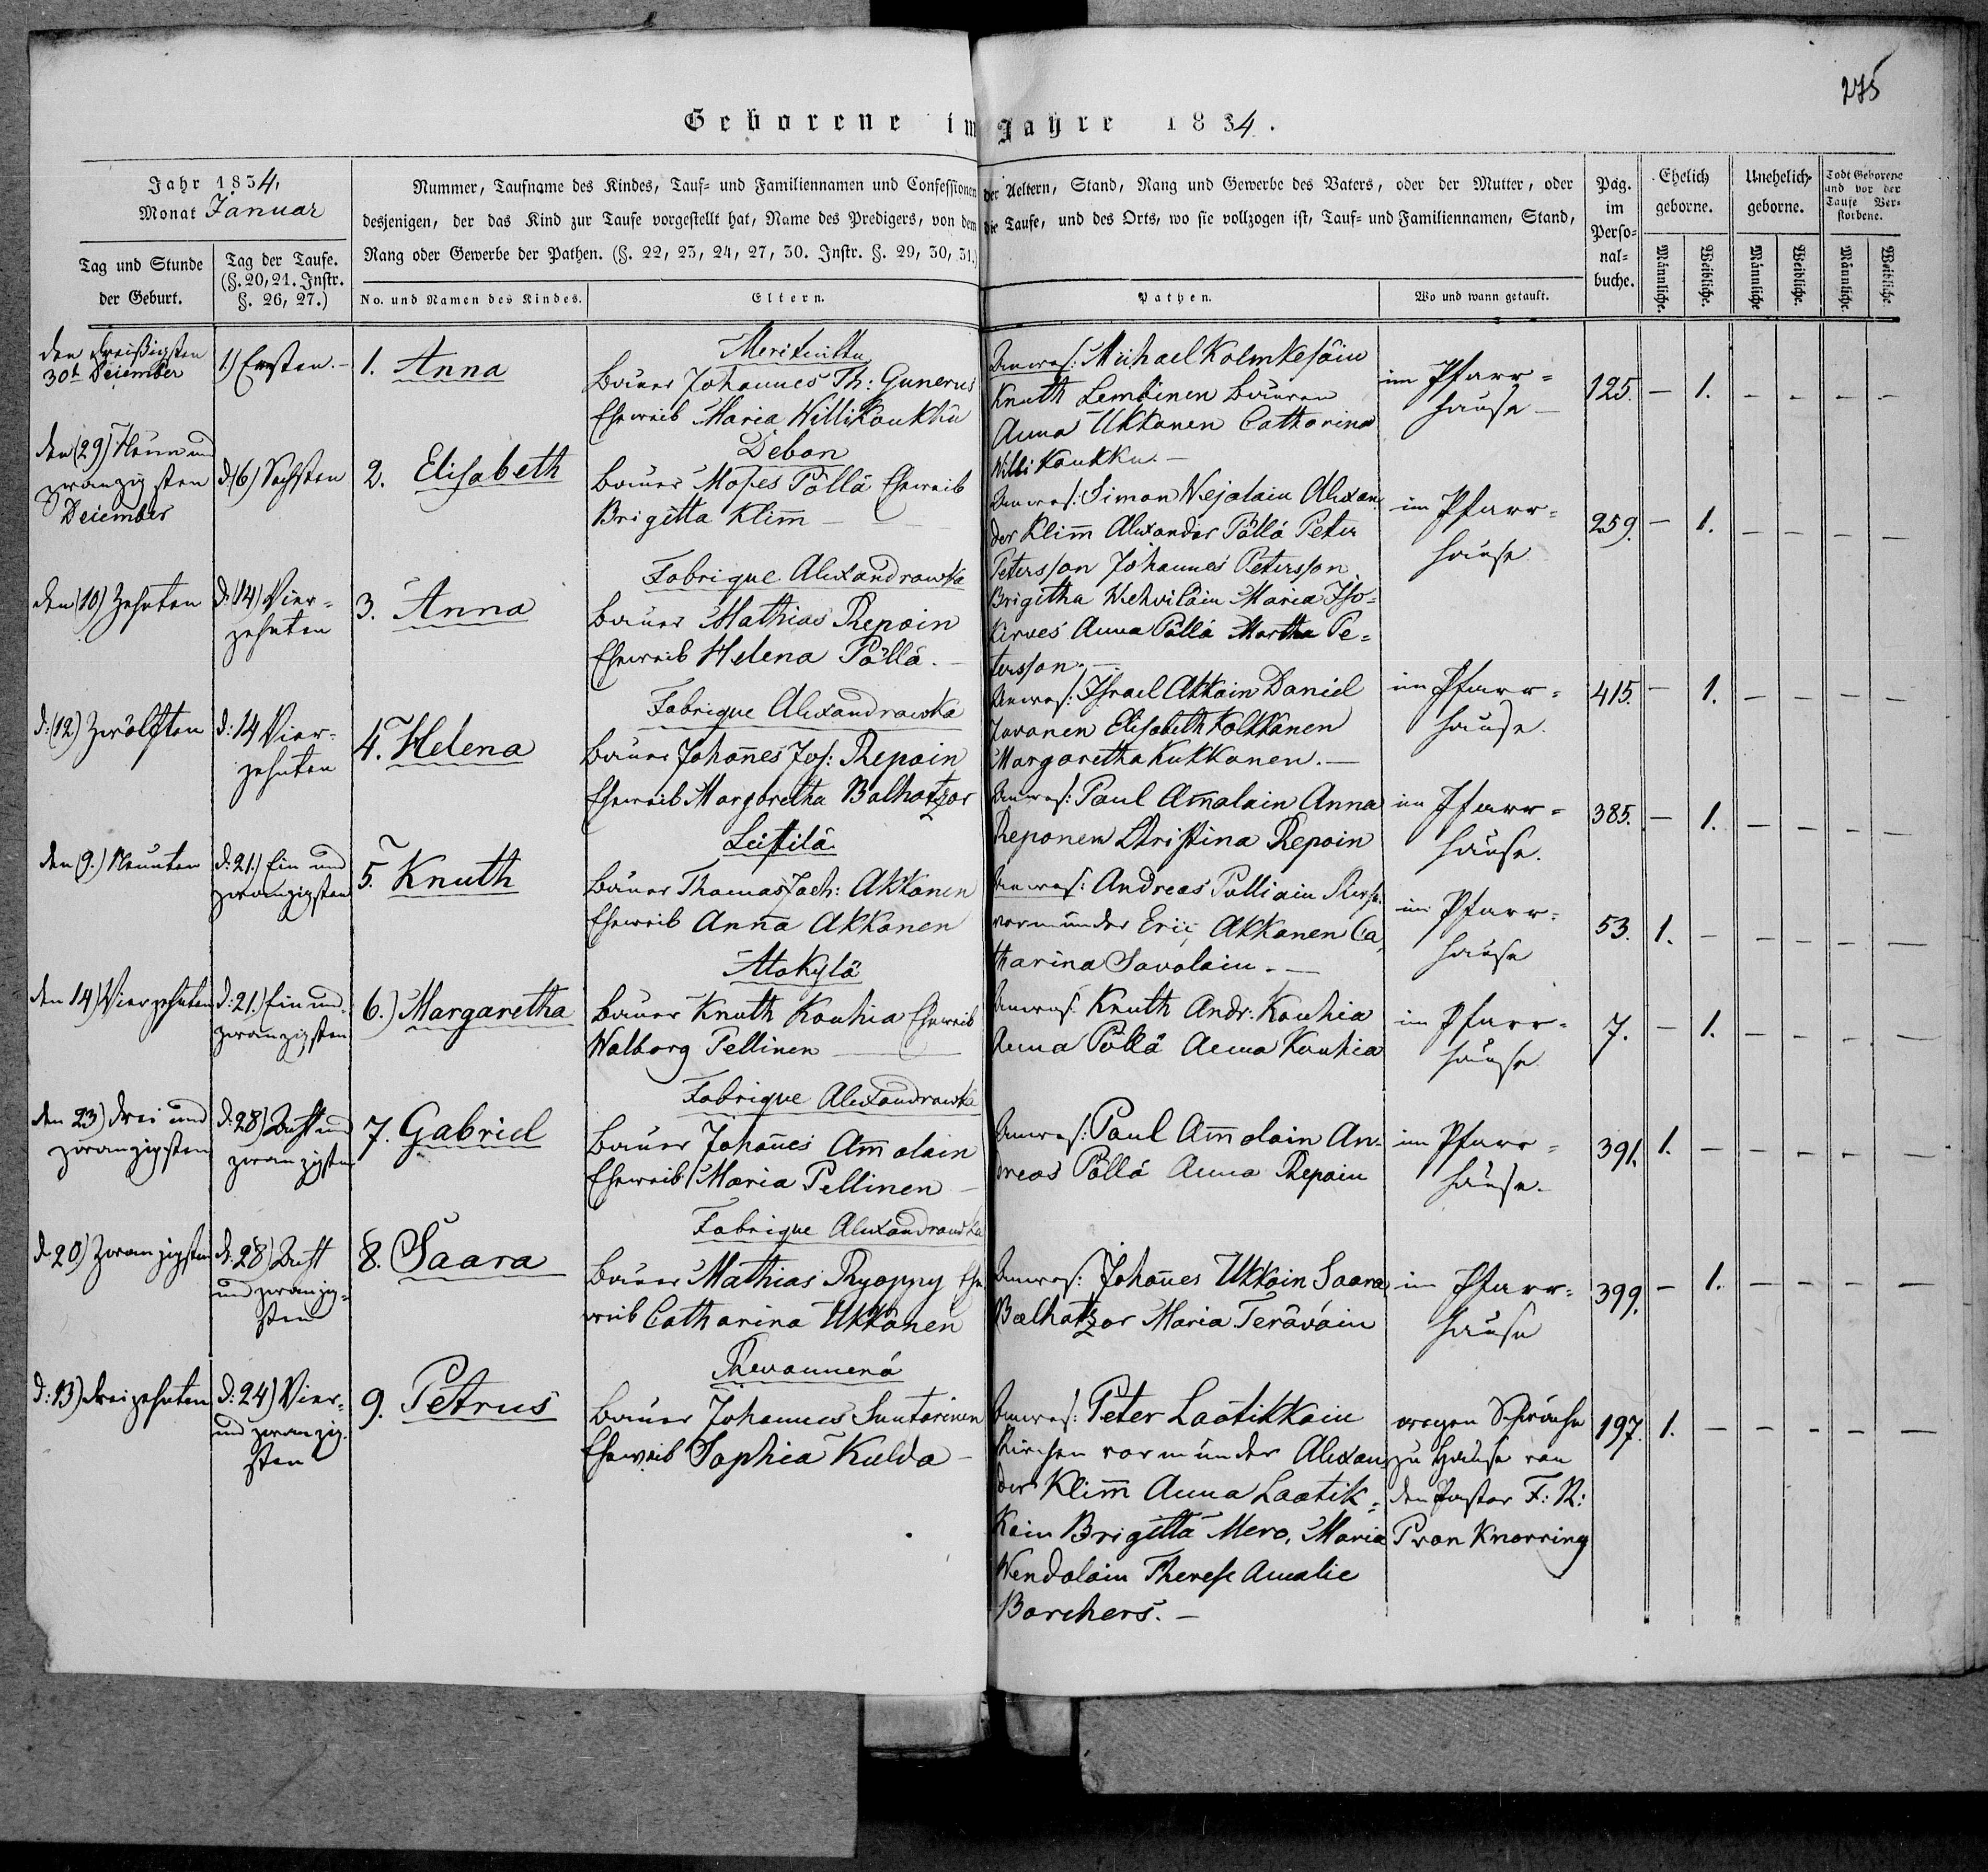 275
Geborene im Jahre 1834.
Jahr 1834,
Monat Januar
Nummer, Taufname des Kindes, Tauf- und Familiennamen und Confessionen der Aeltern, Stand, Rang und Gewerbe des Vaters, oder der Mutter, oder
desjenigen, der das Kind zur Taufe vorgestellt hat, Name des Predigers, von dem die Taufe, und des Orts, wo sie vollzogen ist, Tauf- und Familiennamen, Stand,
Rang oder Gewerbe der Pathen. (§. 22, 23, 24, 27, 30. Instr. §. 29, 30, 31.)
Tag und Stunde
der Geburt.
Tag der Taufe.
(§. 20, 21. Instr.
§. 26, 27.)
No. und Namen des Kindes.
Eltern.
Pathen.
Wo und wann getauft.
Pag.
im
Perso=
nal=
buche.
Ehelich
geborne.
Unehelich
geborne.
Todt Geborene
und vor der
Taufe Ver=
storbene.
Männliche.
Weibliche.
Männliche
Weibliche.
Männliche.
Weibliche
den dreißigsten
30t Deiember
1) Ersten. -
1. Anna
Bauer Johannes Th: Gunerus
Eheweib Maria Willikaukku
Anwes: Michael Kolmkesäin
Knuth Lembinen Bauren
Anna Ukkanen Catharina
Willikaukku. -
im Pfarr=
hause -
125. - 1. - - - -
den (29) Neun und
zwanzigsten
Deiember
d: (6) Sechsten
2. Elisabeth
Debon
Bauer Moses Pöllä Eheweib
Brigitta Klim̄ -
Anwes: Simon Wejalain Alexan
der Klim̄ Alexander Pöllä Peter
Petersson Johannes Petersson
Brigitha Wehviläin Maria Iso=
kirves Anna Pöllä Martha Pe=
tersson. -
im Pfarr=
hause
259. - 1. - - - -
den (10) Zehnten
d: 14) Vier=
zehnten
3. Anna
Fabrique Alexandrowka
Bauer Mathias Repoin
Eheweib Helena Pöllä. -
Anwes: Israel Akkain Daniel
Javanen Elisabeth Kolkkanen
Margaretha Kukkonen. -
im Pfarr=
hause.
415. - 1. - - - -
d: (12) Zwölften
d: 14 Vier=
zehnten
4. Helena
Fabrique Alexandrowka
Bauer Johan̄es Jos: Repoin
Eheweib Margaretha Balhatzar
Anwes: Paul Am̄alain Anna
Reponen Christina Repoin
im Pfarr=
hause.
385. - 1. - - - -
den (9.) Neunten
d: 21.) Ein und
zwanzigsten
5. Knuth
Leistilä
Bauer Thomas Jach: Akkanen
Eheweib Anna Akkanen
Anwes: Andreas Pulliain
vormünder Akkanen Ca
tharina Savolain. -
im Pfarr=
hause
53. 1. - - - - -
den 14) Vierzehnten
d: 21.) Ein und
zwanzigsten
6.) Margaretha
Atokylä
Bauer Knuth Kouhia Eheweib
Walborg Pellinen
Anwes: Knuth Andr: Kouhia
Anna Pöllä Anna Kouhia
im Pfarr=
hause
7. - 1. - - - -
den 23) drei und
zwanzigsten
d: 28) Acht und
zwanzigsten
7. Gabriel
Fabrique Alexandrowka
Bauer Johan̄es Am̄alain
Eheweib Maria Pellinen -
Anwes: Paul Am̄alain An=
dreas Pöllä Anna Repoin
im Pfarr=
hause.
391. 1. - - - - -
d. 20) Zwanzigsten
d: 28) Acht
und zwanzig=
sten
8. Saara
Fabrique Alexandrowka
Bauer Mathias Ryoppy Ehe
weib Catharina Ukkanen
Anwes: Johan̄es Ukkain Saara
Balhatzar Maria Teräväin
im Pfarr=
hause
399. - 1. - - - -
d: 13) dreizehnten
d: 24) Vier=
und zwanzig=
sten
9. Petrus
Bauer Johannes Suutarinen
Eheweib Sophia Kulda -
Anwes: Peter Laatikkain
Kirchen vormünder Alexan
der Klim̄ Anna Laatik=
kain Brigitta Mero, Maria
Wendolain Therese Amalie
Borchers. -
wegen Schwäche
zu Hause von
den Pastor F: R:
P von Knorring
197. 1. - - - - -